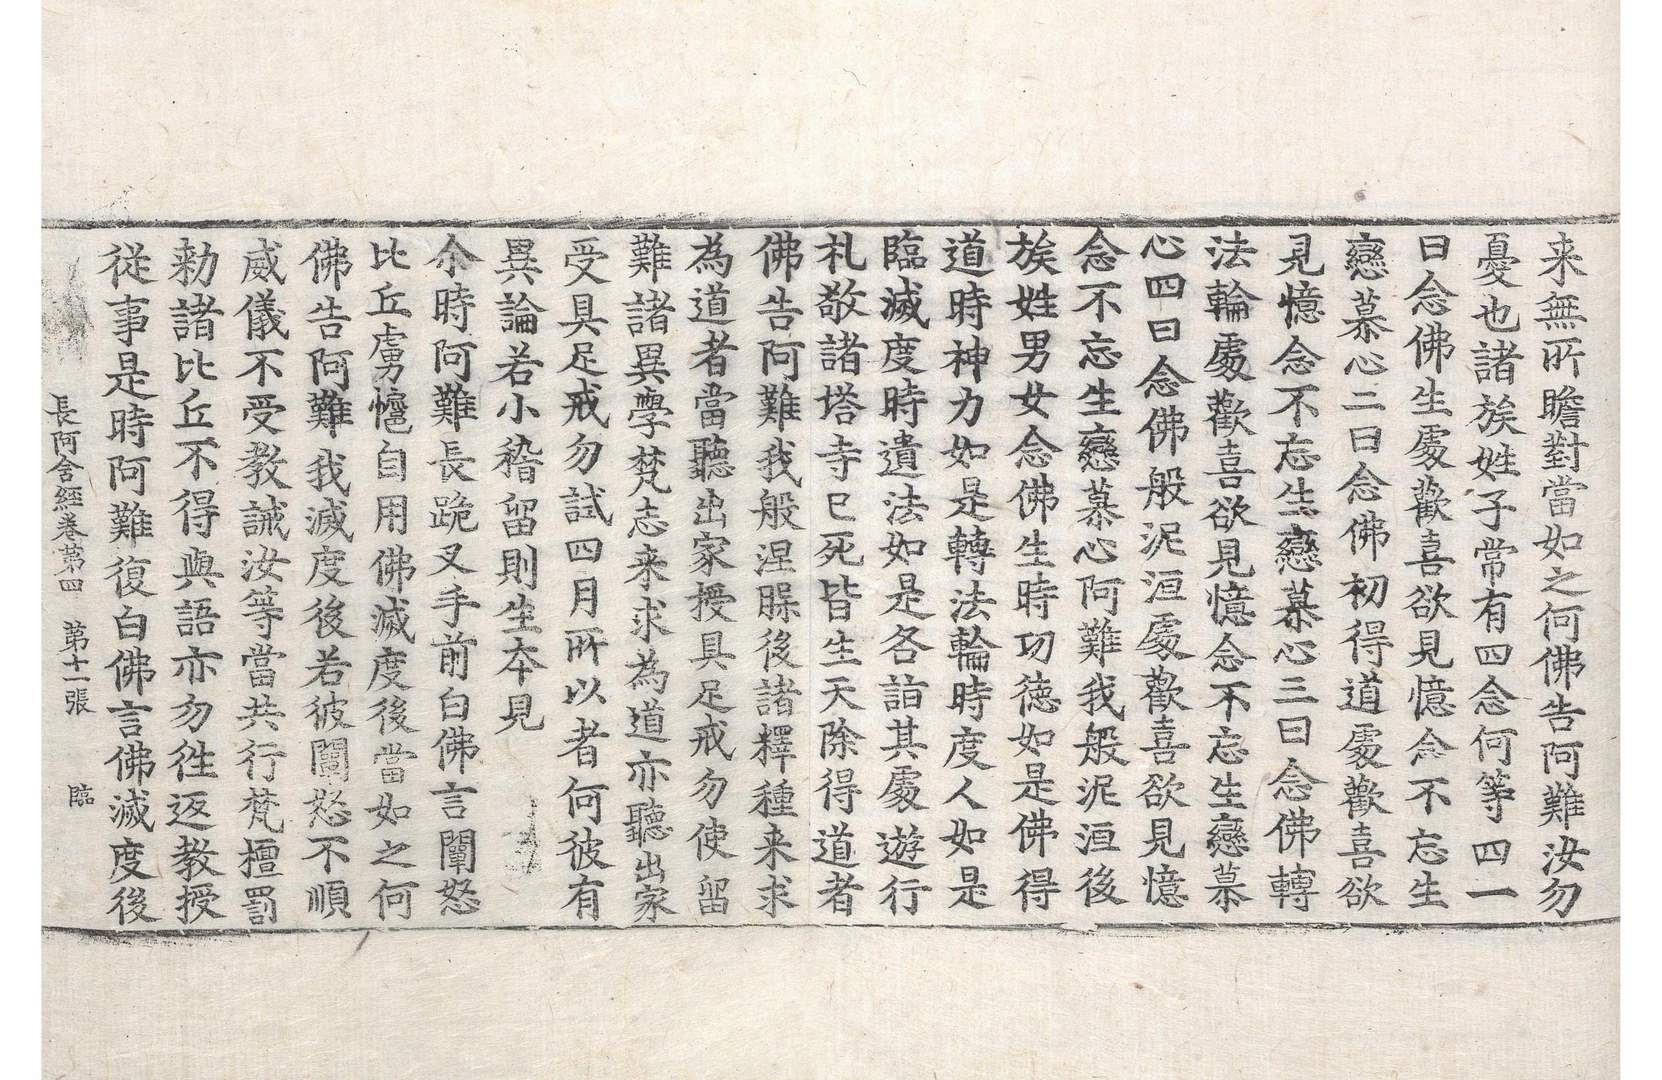 来無所瞻對當如之何佛告阿難汝勿
憂也諸族姓子常有四念何等四一
曰念佛生處歡喜欲見憶念不忘生
戀慕心二曰念佛初得道處歡喜欲
見憶念不忘生戀慕心三曰念佛轉
法輪處歡喜欲見憶念不忘生戀慕
心四曰念佛般泥洹處歡喜欲見憶
念不忘生戀慕心阿難我般泥洹後
族姓男女念佛生時功德如是佛得
道時神力如是轉法輪時度人如是
臨滅度時遺法如是各詣其處遊行
礼敬諸塔寺已死皆生天除得道者
佛告阿難我般涅槃後諸釋種来求
為道者當聽出家授具足戒勿使留
難諸異學梵志来求為道亦聽出家
受具足戒勿試四月所以者何彼有
異論若小稽留則生本見
尒時阿難長跪叉手前白佛言闡怒
比丘虜扈自用佛滅度後當如之何
佛告阿難我滅度後若彼闡怒不順
威儀不受教誡汝等當共行梵檀罰
勑諸比丘不得與語亦勿徃返教授
従事是時阿難復白佛言佛滅度後
長阿含經卷第四　第十一張　臨